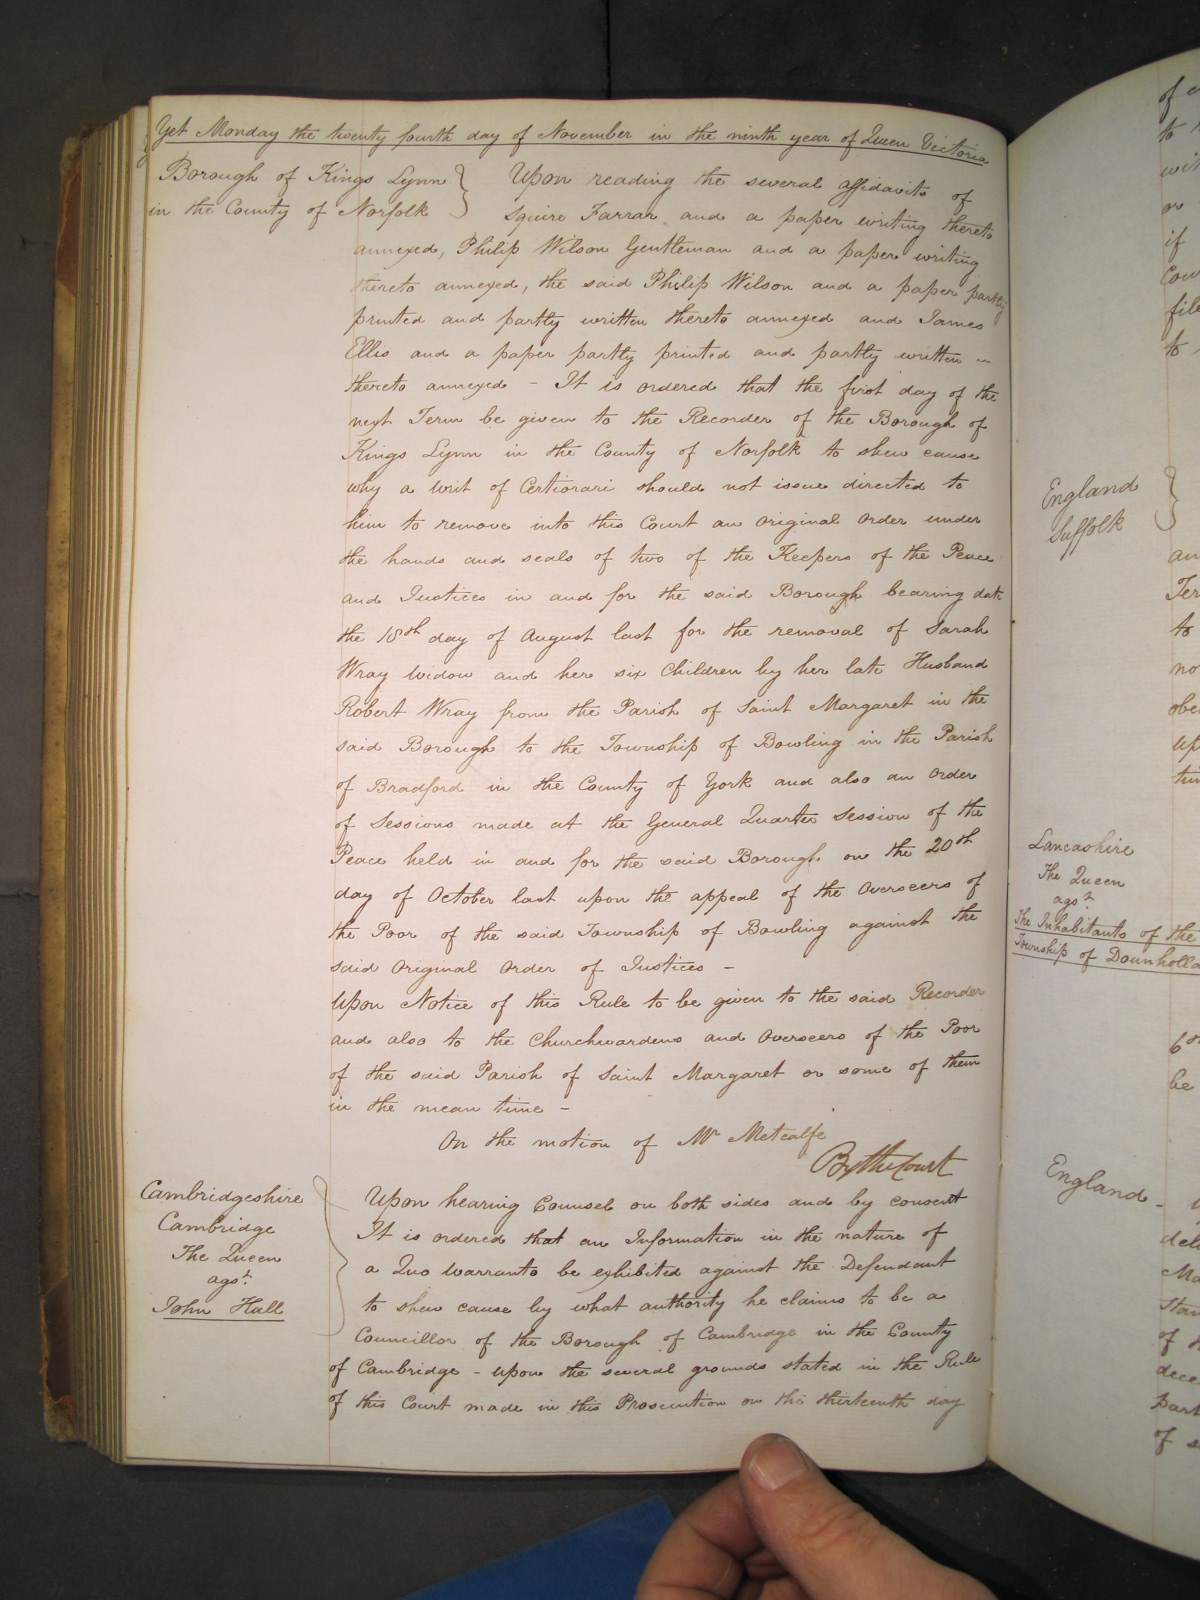 Yet Monday the twenty fourth day of November in the ninth year of Queen Victoria
Borough of Kings Lynn
in the County of Norfolk
Upon reading the several affidavits of
Squire Farrar and a paper writing thereto
annexed, Philip Wilson Gentleman and a paper writing
thereto annexed, the said Philip Wilson and a paper partly
printed and partly written thereto annexed and James
Ellis and a paper partly printed and partly written ~
thereto annexed - It is ordered that the first day of the
next Term be given to the Recorder of the Borough of
Kings Lynn in the County of Norfolk to shew cause
why a writ of Certiorari should not issue directed to
him to remove into this Court an original order under
the hands and seals of two of the Keepers of the Peace
and Justices in and for the said Borough bearing date
the 18th day of August last for the removal of Sarah
Wray widow and her six Children by her late Husband
Robert Wray from the Parish of Saint Margaret in the
said Borough to the Township of Bowling in the Parish
of Bradford in the County of York and also an order
of Sessions made at the General Quarter Session of the
Peace held in and for the said Borough on the 20th
day of October last upon the appeal of the Overseers of
the Poor of the said Township of Bowling against the
said Original Order of Justices -
Upon Notice of this Rule to be given to the said Recorder
and also to the Churchwardens and Overseers of the Poor
of the said Parish of Saint Margaret or some of them
in the mean time -
On the motion of Mr Metcalfe
By the Court
Cambridgeshire
Cambridge
The Queen
agst.
John Hall
Upon hearing Counsel on both sides and by consent
It is ordered that an Information in the nature of
a Quo Warranto be exhibited against the Defendant
to shew cause by what authority he claims to be a
Councillor of the Borough of Cambridge in the County
of Cambridge - upon the several grounds stated in the Rule
of this Court made in this Prosecution on the thirteenth day
England
Suffolk
Lancashire
The Queen
agst.
The Inhabitants of the
Township of
England -